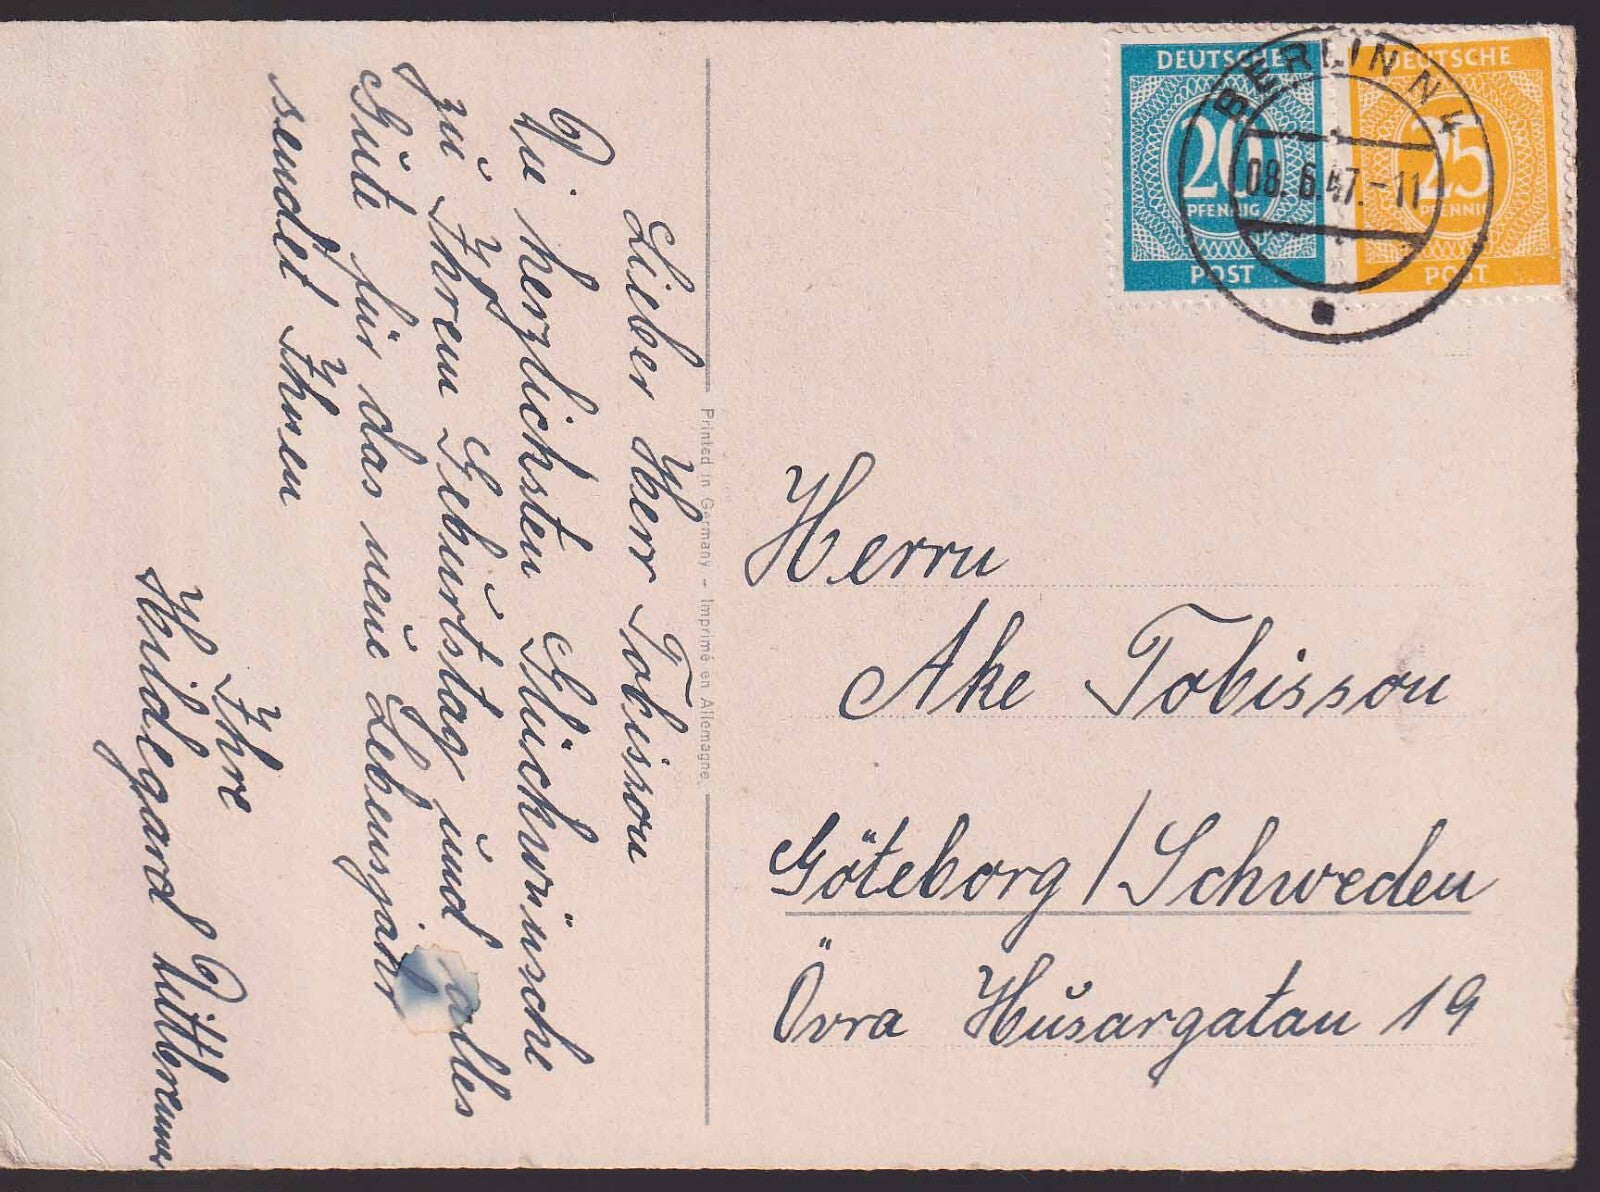 Lieber Herr Tobisson
Die herzlichsten Glückwünsche
zŭ Ihrem Gebŭrtstag ŭnd alles
Gŭte für das neŭe Lebensjahr
sendet Ihnen
Ihre
Heidlegard
Printed in Germany - Imprimé en Allemagne.
DEUTSCHE
20
PFENNIG
POST
DEUTSCHE
25
PFENNIG
POST
BERLIN N 4
08.6.47.-11
Herrn
Ake Tobisson
Göteborg/Schweden
Övra Hŭsargatan 19